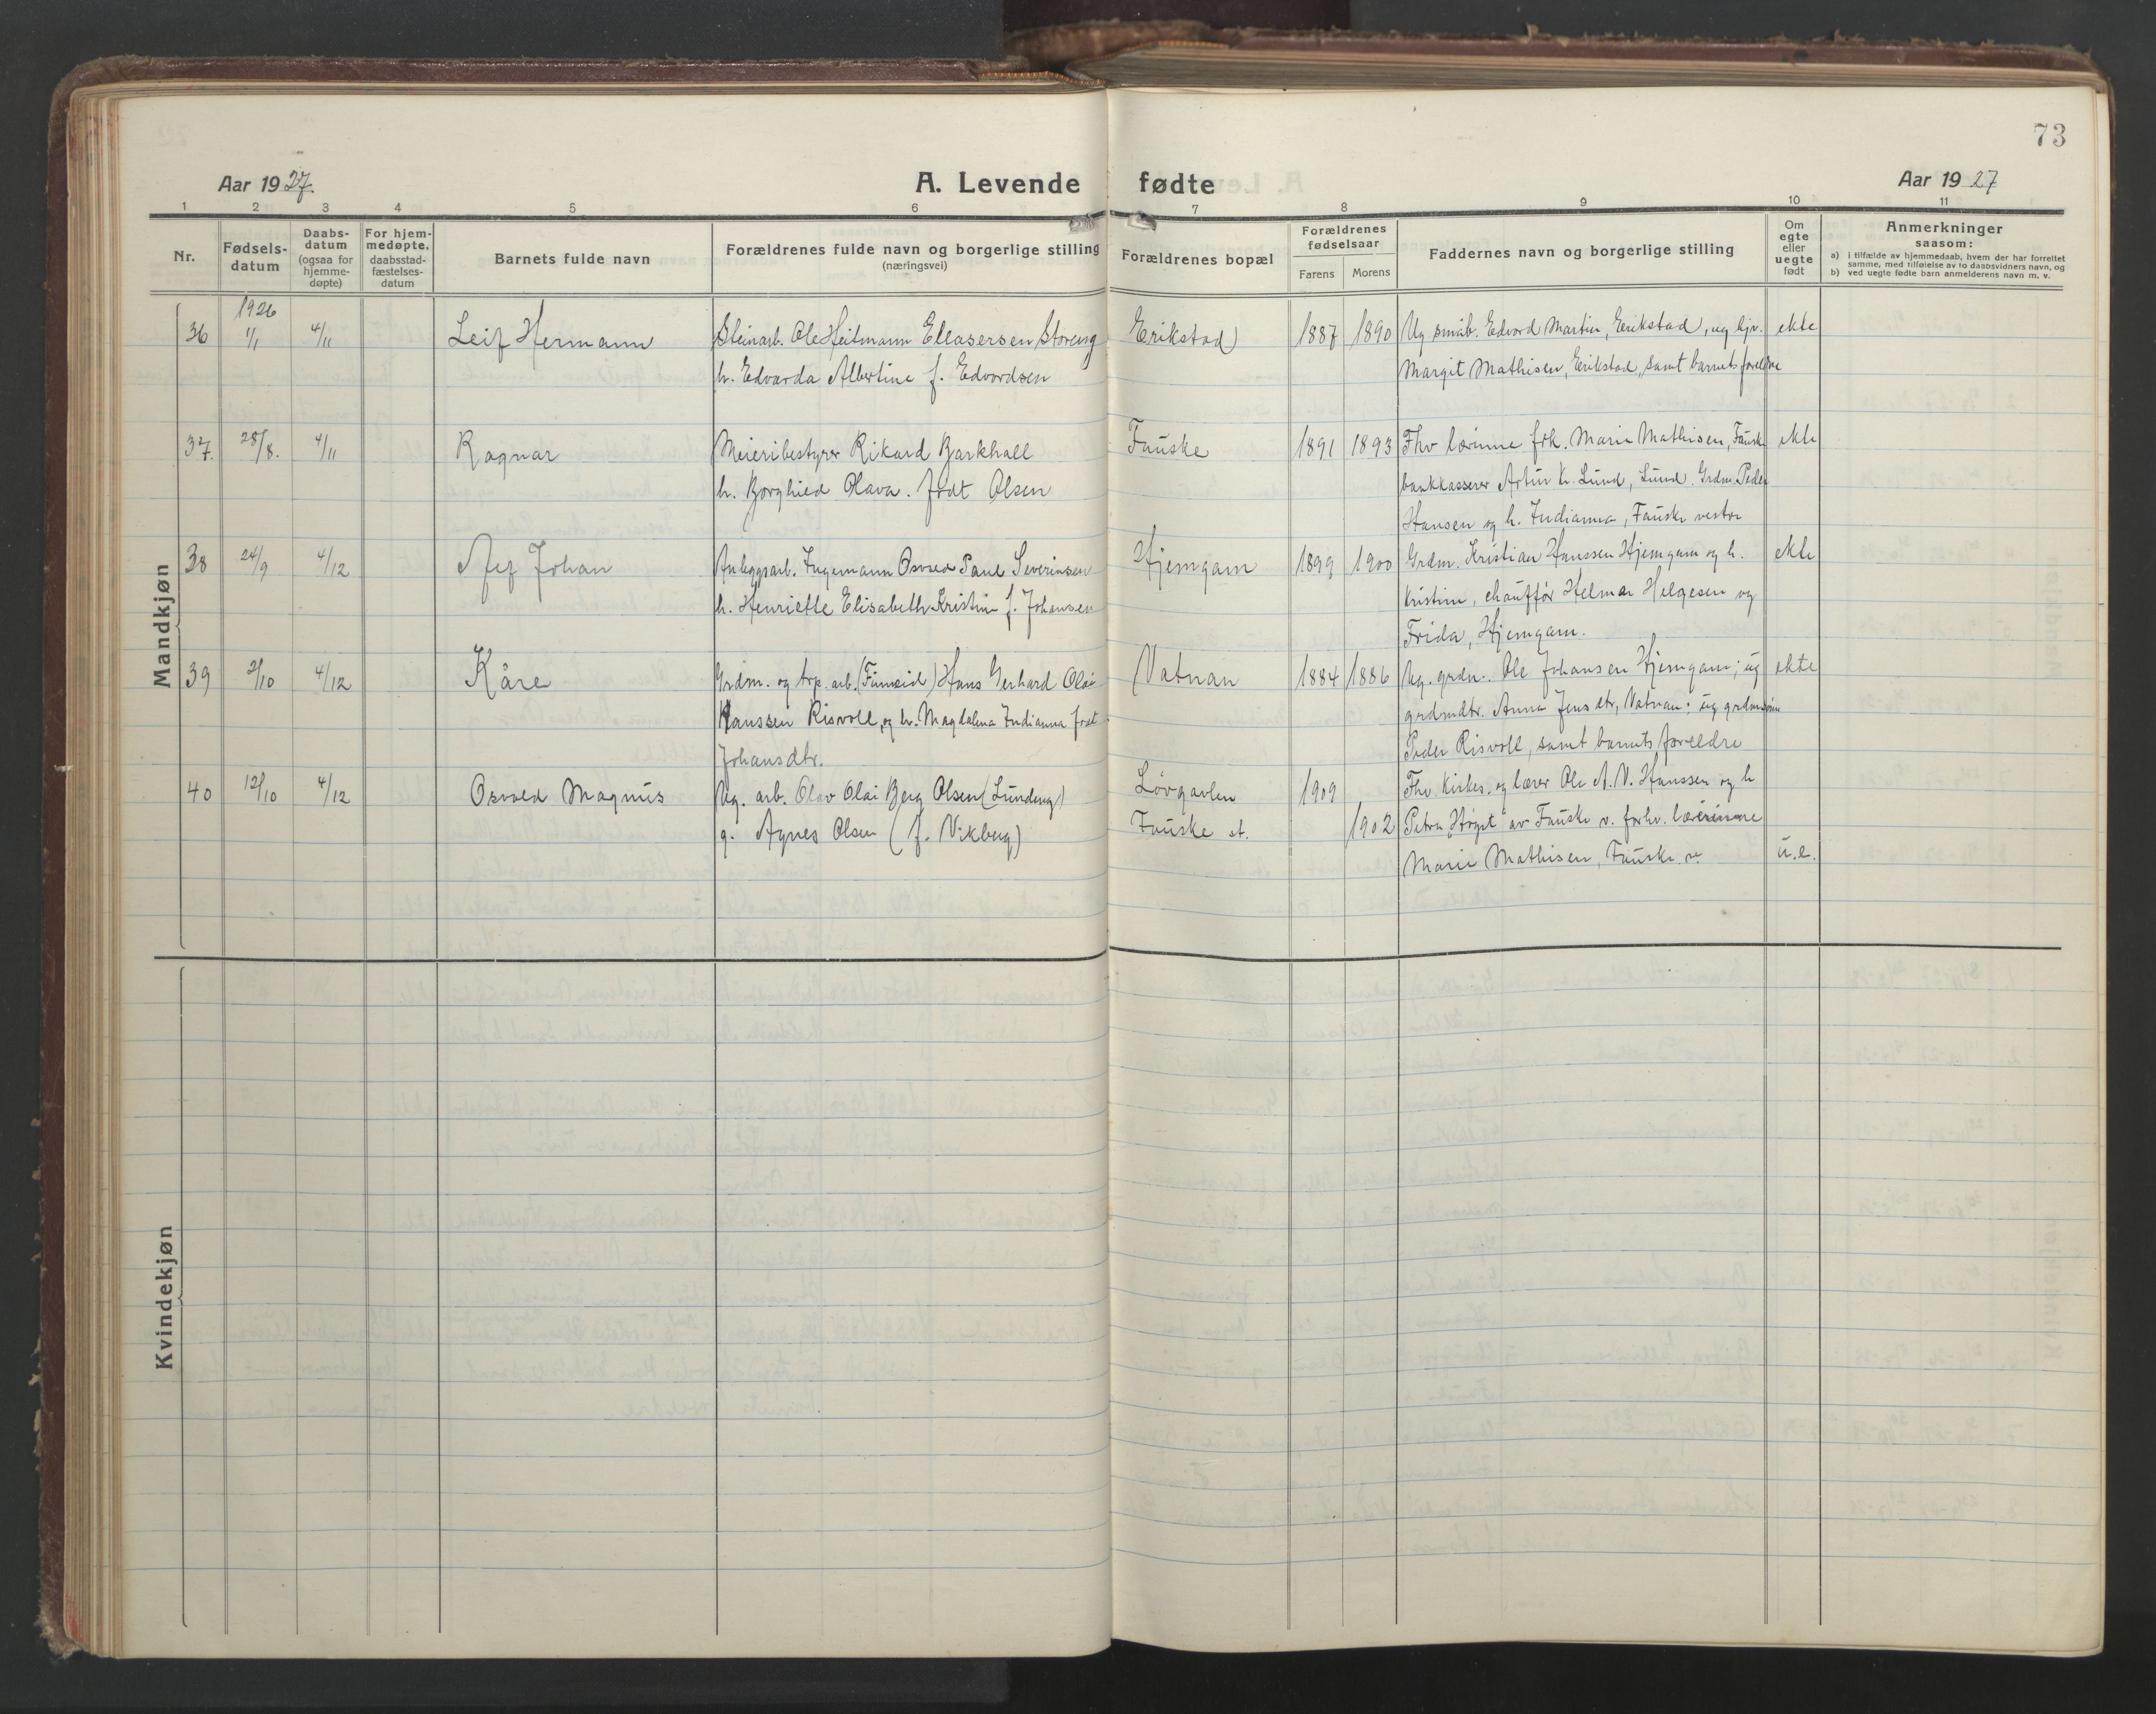 73
Aar 1927.
A. Levende fødte
Aar 1927
1 2 3 4 5 6 7 8 9 10 11
Nr.
Fødsels-
datum
Daabs-
datum
(ogsaa for
hjemme-
døpte)
For hjem-
medøpte,
daabsstad-
fæstelses-
datum
Barnets fulde navn
Forældrenes fulde navn og borgerlige stilling
(næringsvei)
Forældrenes bopæl
Forældrenes
fødselsaar
Farens Morens
Faddernes navn og borgerlige stilling
Om
egte
eller
uegte
født
Anmerkninger
saasom:
a) i tilfælde av hjemmedaab, hvem der har forrettet
samme, med tilføielse av to daabsvidners navn, og
b) ved uegte fødte barn anmelderens navn m. v.
Mandkjøn
1926
36 1/1 4/11 Leif Hermann Steinarb. Ole Heitmann Ellasersen Storeng Erikstad 1887 1890 Ug småb. Edvard Martin, Erikstad, ug hjv. ekte
h. Edvarda Albertine f. Edvardsen Margit Mathisen, Erikstad, samt barnets foreldre
37. 28/8. 4/11 Ragnar Meieribestyrer Rikard Barkhall Fauske 1891 1893 Fhv lærinne frk. Marie Mathisen, Fauske ekte
h. Borghild Olava. født Olsen bankkasserer Artur K. Lund, Lund. Grdm. Peder
Hansen og h. Indianna, Fauske vestre
38 24/9 4/12 Johan Anleggsarb. Ingemann Osvald Paul Severinsen Hjemgam 1899 1900 Grdm. Kristian Hanssen Hjemgam og h. ekte
h. Henriette Elisabeth Kristine f. Johansen Kristine, chauffør Helmar Helgesen og
Frida, Hjemgam.
39 2/10 4/12 Kåre Grdm. og trp. arb. (Finneid) Hans Gerhard Olai Vatnan 1884 1886 Ug. grdm. Ole Johansen Hjemgam; ug ekte
Hanssen Risvoll, og h. Magdalena Indianna født grdmdtr. Anna Jensdtr, Vatnan; ug grdmsønn
Johansdtr. Peder Risvoll, samt barnets foreldre
40 12/10 4/12 Osvald Magnus Ug. arb. Olav Olai Berg Olsen (Lundeng) Løvgavlen 1909 Fhv. kirkes. og lærer Ole A. V. Hanssen og h
g. Agnes Olsen (f. Vikberg) Fauske st. 1902 Petra Høgset av Fauske v. forhv. lærerinne
Marie Mathisen, Fauske v. u.e.
Kvindekjøn